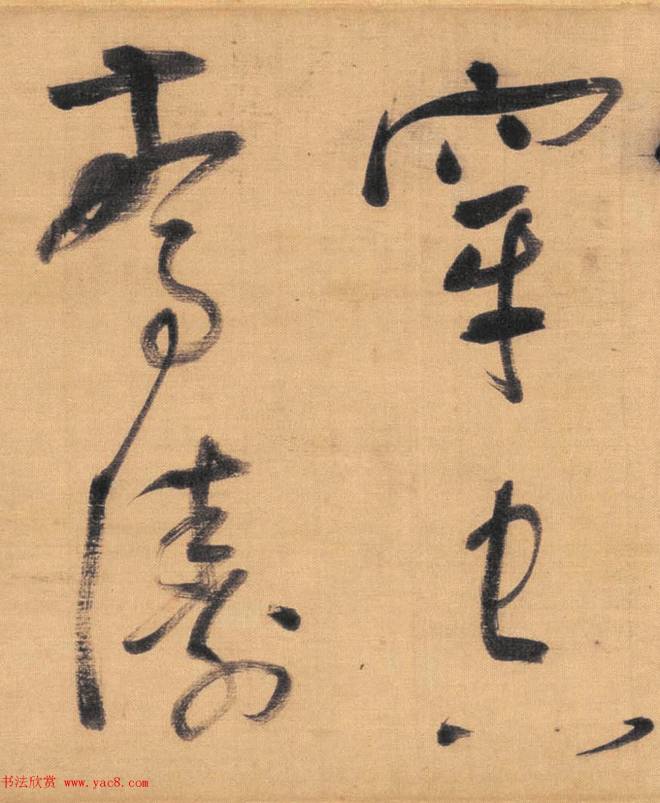 穿
驚濤
书法欣赏 www.yac8.com